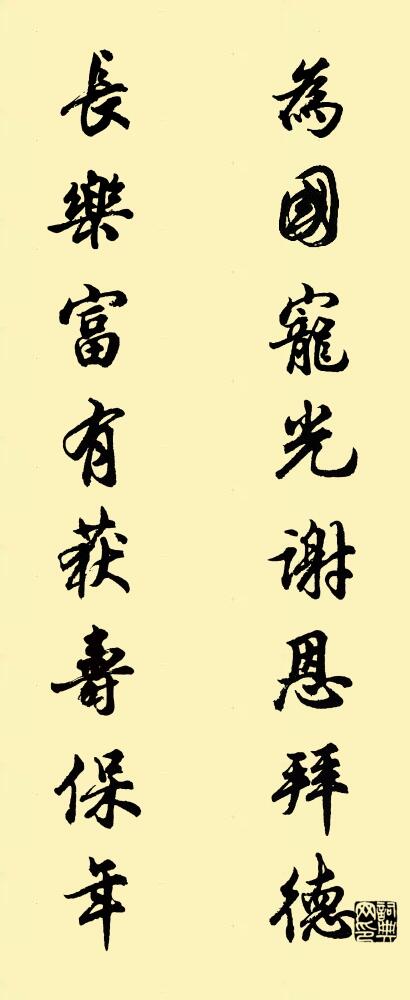 為國寵光謝恩拜德
長樂富有获壽保年
詞典网印